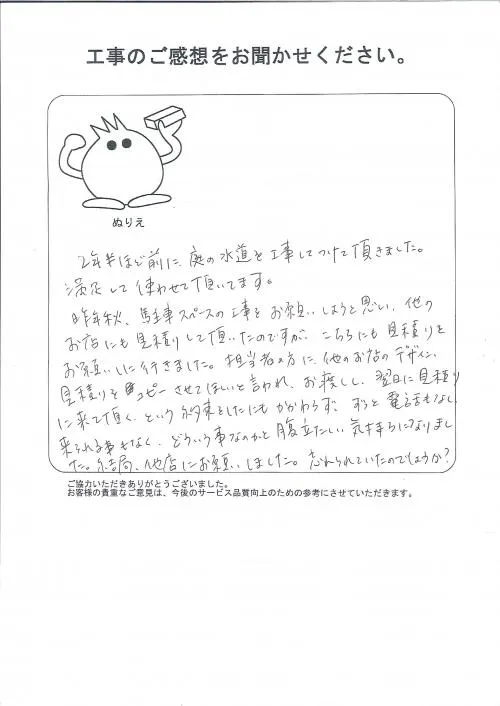 工事のご感想をお聞かせください。
ぬりえ
2年半ほど前に、庭の水道を工事してつけて頂きました。
満足して使わせて頂いてます。
昨年秋、駐車スペースの工事をお願いしようと思い、他の
お店にも見積りして頂いたのですが、こちらにも見積りを
お願いしに行きました。担当者の方に、他のお店のデザイン、
見積りをコピーさせてほしいと言われ、お渡しし、翌日に見積り
に来て頂く、という約束をしたにもかかわらず、ずっと電話もなく、
来られる事もなく、どういう事なのかと腹立たしい気持ちになりまし
た。結局、他店にお願いしました。忘れられていたのでしょうか?
ご協力いただきありがとうございました。
お客様の貴重なご意見は、今後のサービス品質向上のための参考にさせていただきます。